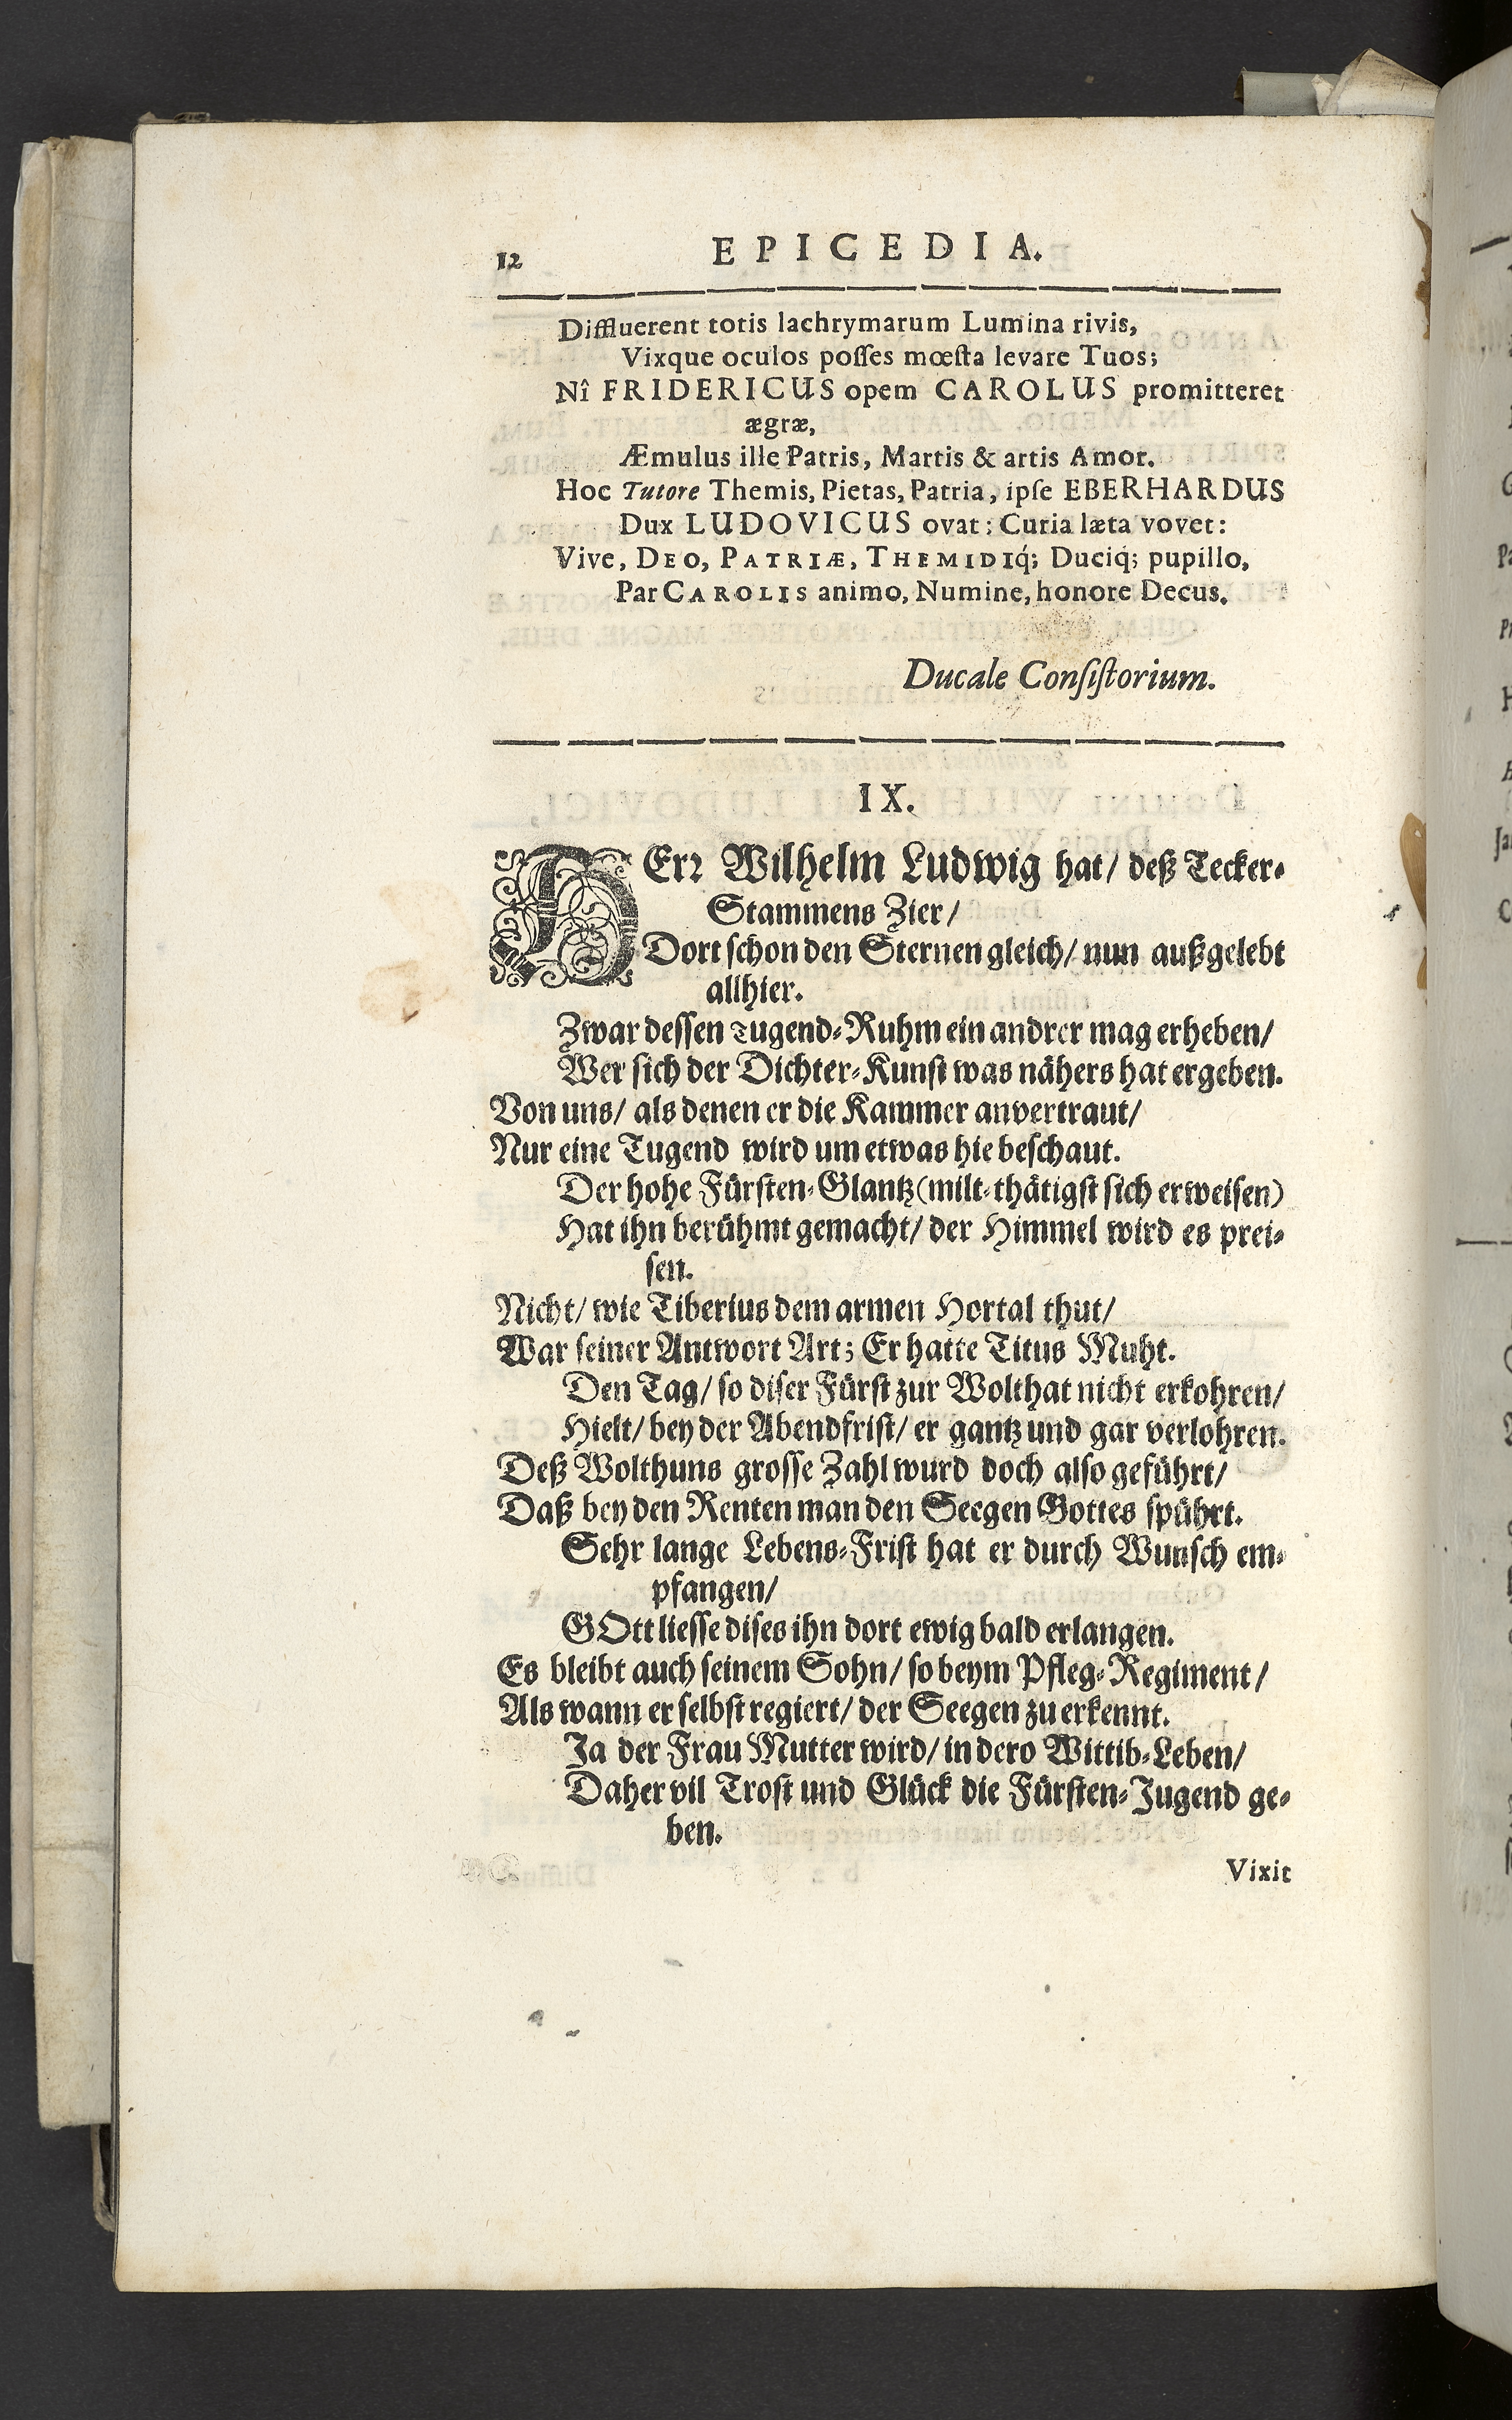 12 EPICEDIA.
Diffluerent totis lachrymarum Lumina rivis,
Vixque oculos posses mœsta levare Tuos;
Nî FRIDERICUS opem CAROLUS promitteret
ægræ,
Æmulus ille Patris, Martis & artis Amor.
Hoc Tutore Themis, Pietas, Patria, ipse EBERHARDUS
Dux LUDOVICUS ovat; Curia læta vovet:
Vive, DEO, PATRIÆ, THEMIDIq́; Duciq́; pupillo,
Par CAROLIS animo, Numine, honore Decus.
Ducale Consistorium.
IX.
HErr Wilhelm Ludwig hat/ deß Tecker-
Stammens Zier/
Dort schon den Sternen gleich/ nun außgelebt
allhier.
Zwar dessen Tugend-Ruhm ein andrer mag erheben/
Wer sich der Dichter-Kunst was nähers hat ergeben.
Von uns/ als denen er die Kammer anvertraut/
Nur eine Tugend wird um etwas hie beschaut.
Der hohe Fürsten-Glantz (milt-thätigst sich erweisen)
Hat ihn berühmt gemacht/ der Himmel wird es prei-
sen.
Nicht/ wie Tiberius dem armen Hortal thut/
War seiner Antwort Art; Er hatte Titus Muht.
Den Tag/ so diser Fürst zur Wolthat nicht erkohren/
Hielt/ bey der Abendfrist/ er gantz und gar verlohren.
Deß Wolthuns grosse Zahl wurd doch also geführt/
Daß bey den Renten man den Seegen Gottes spührt.
Sehr lange Lebens-Frist hat er durch Wunsch em-
pfangen/
GOtt liesse dises ihn dort ewig bald erlangen.
Es bleibt auch seinem Sohn/ so beym Pfleg-Regiment/
Als wann er selbst regiert/ der Seegen zu erkennt.
Ja der Frau Mutter wird/ in dero Wittib-Leben/
Daher vil Trost und Glück die Fürsten-Jugend ge-
ben.
Vixit